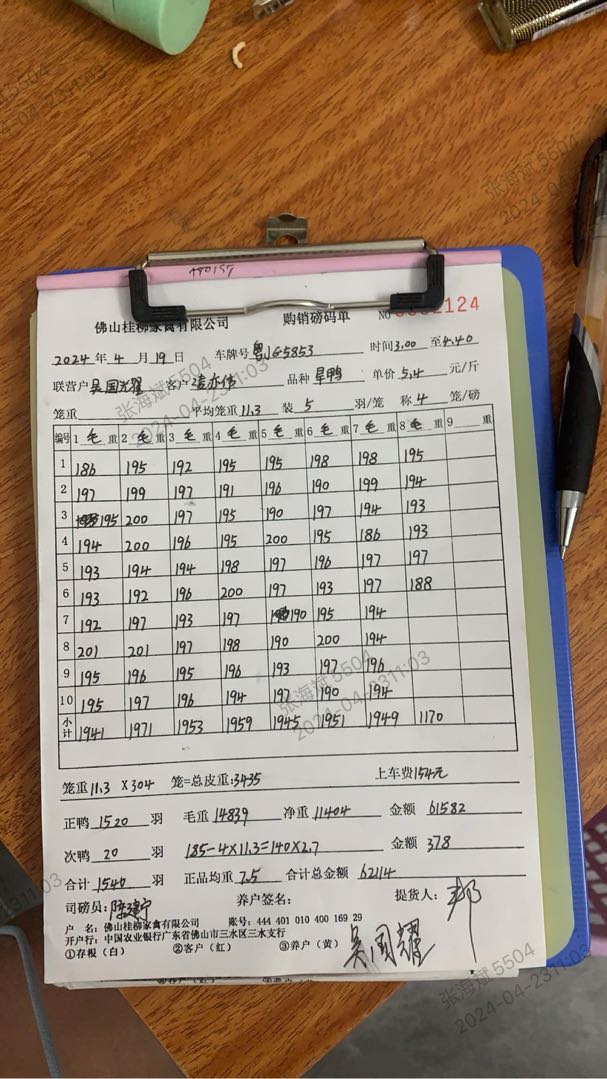 190157
佛山桂柳家禽有限公司 购销磅码单 NO 0002124
2024 年 4 月 19 日 车牌号 粤JG5853 时间 3.00 至 4.40
联营户 吴国耀 客户 凌亦伟 品种 旱鸭 单价 5.4 元/斤
笼重 平均笼重 11.3 装 5 羽/笼 称 4 笼/磅
编号 1 毛 重 2 毛 重 3 毛 重 4 毛 重 5 毛 重 6 毛 重 7 毛 重 8 毛 重 9 重
1 186 195 192 195 195 198 198 195
2 197 199 197 191 196 190 199 194
3 195 200 197 195 190 197 194 193
4 194 200 196 195 200 195 186 193
5 193 194 194 198 197 196 197 197
6 193 192 196 200 197 193 197 188
7 192 197 193 197 190 195 194
8 201 201 197 198 190 200 194
9 195 196 195 196 193 197 196
10 195 197 196 194 197 190 194
小计 1941 1971 1953 1959 1945 1951 1949 1170
笼重 11.3 X 304 笼=总皮重: 3435 上车费 154元
正鸭 1520 羽 毛重 14839 净重 11404 金额 61582
次鸭 20 羽 185-4×11.3=140×2.7 金额 378
合计 1540 羽 正品均重 7.5 合计总金额 62114
司磅员: 养户签名: 提货人: 邦
户 名: 佛山桂柳家禽有限公司 账号: 444 401 010 400 169 29
开户行: 中国农业银行广东省佛山市三水区三水支行
①存根(白) ②客户(红) ③养户(黄) 吴国耀
张海斌 5504
2024-04-23 11:03
张海斌 5504
2024-04-23 11:03
张海斌 5504
2024-04-23 11:03
张海斌 5504
2024-04-23 11:03